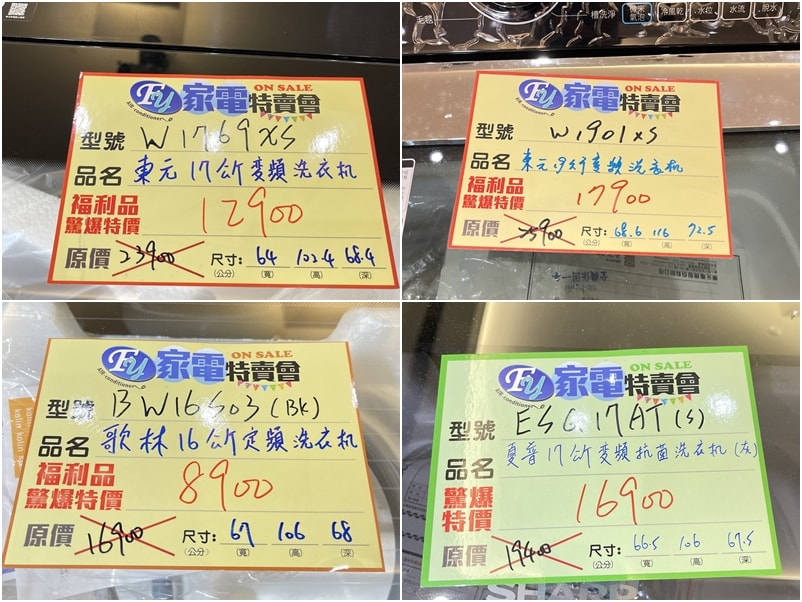 Fu 家電特賣會 ON SALE
Air-conditioner
型號 W1769XS
品名 東元17公斤變頻洗衣机
福利品
驚爆特價 12900
原價 23900 尺寸:(公分) 64(寬) 102.4(高) 68.4(深)
毛毯 槽洗淨 冷風乾 水位 水流 脫水
Fu 家電特賣會 ON SALE
Air-conditioner
型號 W1901XS
品名 東元19公斤變頻洗衣机
福利品
驚爆特價 17900
原價 25900 尺寸:(公分) 68.6(寬) 116(高) 72.5(深)
kolin kolin
Fu 家電特賣會 ON SALE
Air-conditioner
型號 BW16S03(BK)
品名 歌林16公斤定頻洗衣机
福利品
驚爆特價 8900
原價 16900 尺寸:(公分) 67(寬) 106(高) 68(深)
Fu 家電特賣會 ON SALE
Air-conditioner
型號 ESG17AT(S)
品名 夏普17公斤變頻抗菌洗衣机(灰)
驚爆
特價 16900
原價 19400 尺寸:(公分) 66.5(寬) 106(高) 67.5(深)
SHARP